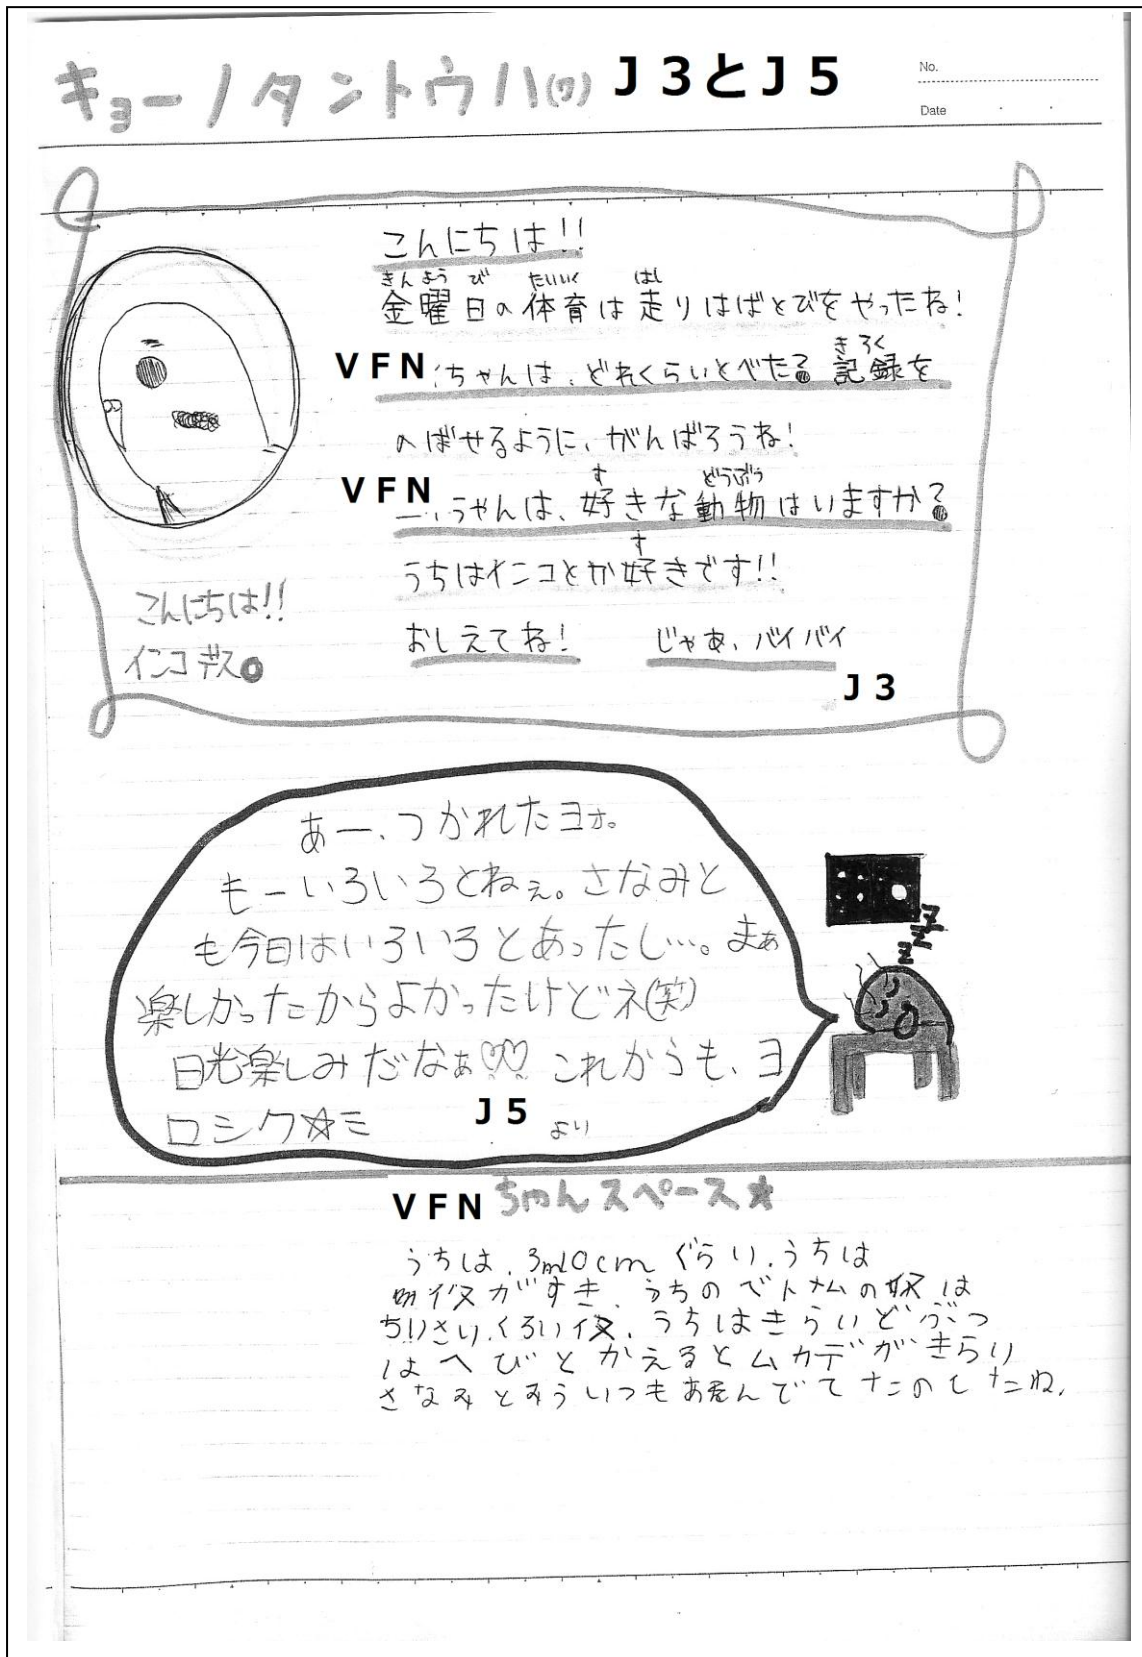 キョーノタントウハ(ワ) J3とJ5
No.
Date
こんにちは!!
きんようび たいいく はし
金曜日の体育は走りはばとびをやったね!
VFN ちゃんは、どれくらいとべた? 記録を
きろく
のばせるように、がんばろうね!
す どうぶつ
VFN ちゃんは、好きな動物はいますか?
す
うちはインコとか好きです!!
おしえてね! じゃあ、バイバイ
J3
こんにちは!!
インコデス。
あー、つかれたヨォ。
もーいろいろとねぇ。さなみと
も今日はいろいろとあったし…。まぁ
楽しかったからよかったけどネ(笑)
日光楽しみだなぁ♡♡ これからも、ヨ
ロシク☆ミ J5 より
zzz
VFN ちゃんスペース★
うちは、3m10cmぐらい、うちは
がすき、うちのベトナムの は
ちいさい、くろい 、うちはきらいどぶつ
はへびとかえるとムカデがきらい
さなみと いつもあ んでてたのしたね、